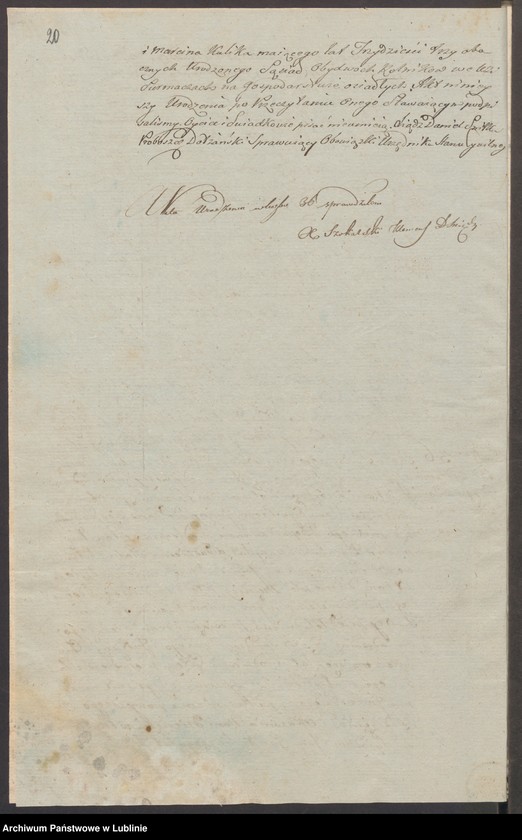 20
i Marcina Kulika maiącego lat Trzydzieści Trzy oba
cznych Urodzącego Sąsiad, Obydwoch Rolnikow we Wsi
na Gospodarstwie osiadłych, Akt ninieỹ
szy Urodzenia po Przeczytanie Onego Stawaiącym podpi
saliśmy. Oyciec i Swiadkowie pisac nieumieią. Xiądz Daniel
Proboszcz Sprawuiący Obowiązki Urzędnika Stanu Cywilnego
Akta Urodzenia sprawdziłem
X Szokalski
Archiwum Państwowe w Lublinie